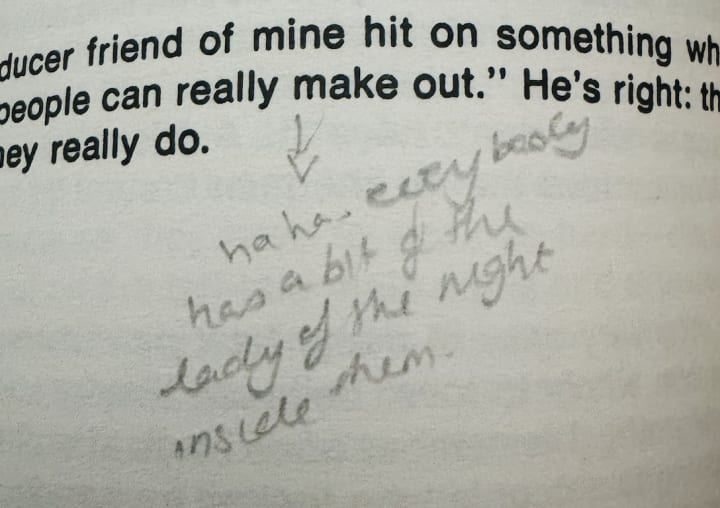 ducer friend of mine hit on something wh
people can really make out." He's right: th
hey really do.
haha. everybody
has a bit of the
lady of the night
inside them.